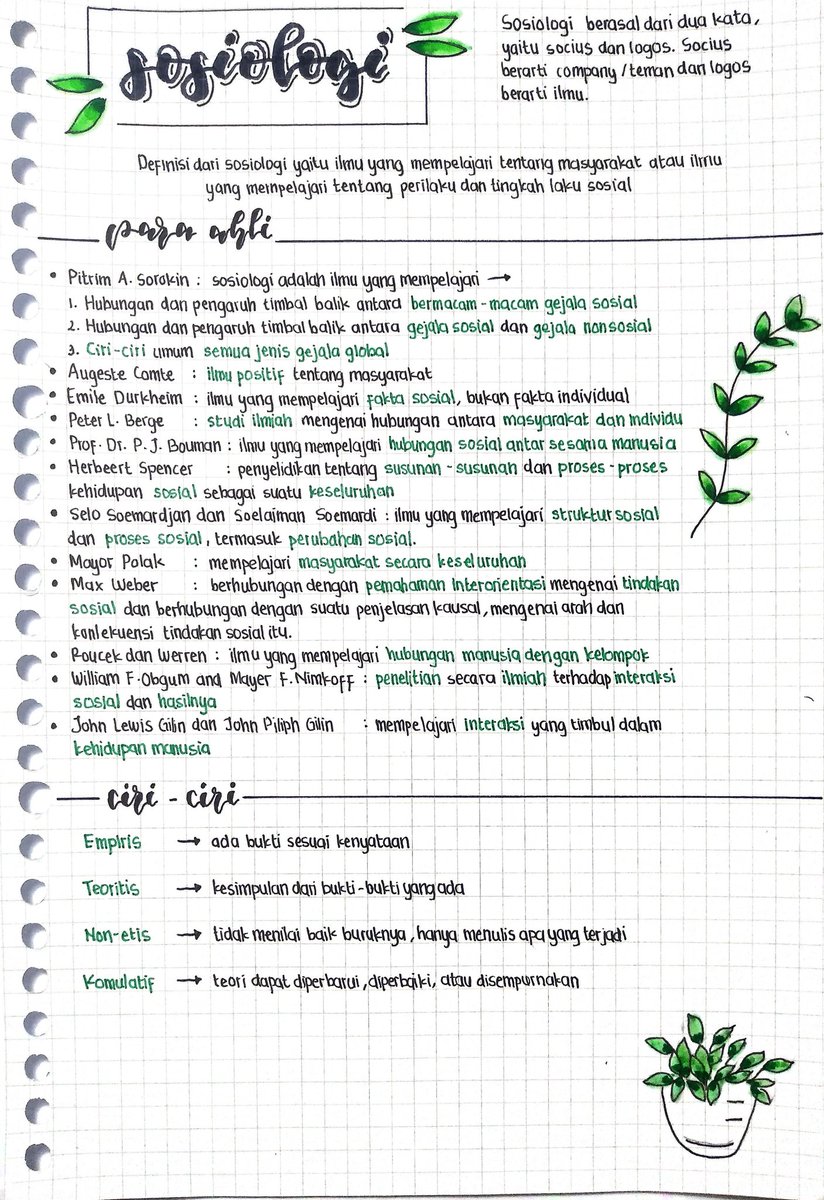 sosiologi
Sosiologi berasal dari dua kata,
yaitu socius dan logos. Socius
berarti company/teman dan logos
berarti ilmu.
Definisi dari sosiologi yaitu ilmu yang mempelajari tentang masyarakat atau ilmu
yang mempelajari tentang perilaku dan tingkah laku sosial
para ahli
• Pitrim A. Sorokin : sosiologi adalah ilmu yang mempelajari →
1. Hubungan dan pengaruh timbal balik antara bermacam-macam gejala sosial
2. Hubungan dan pengaruh timbal balik antara gejala sosial dan gejala nonsosial
3. Ciri-ciri umum semua jenis gejala global
• Augeste Comte : ilmu positif tentang masyarakat
• Emile Durkheim : ilmu yang mempelajari fakta sosial, bukan fakta individual
• Peter L. Berge : studi ilmiah mengenai hubungan antara masyarakat dan individu
• Prof. Dr. P. J. Bouman : ilmu yang mempelajari hubungan sosial antar sesama manusia
• Herbeert Spencer : penyelidikan tentang susunan-susunan dan proses-proses
kehidupan sosial sebagai suatu keseluruhan
• Selo Soemardjan dan Soelaiman Soemardi : ilmu yang mempelajari struktur sosial
dan proses sosial, termasuk perubahan sosial.
• Mayor Polak : mempelajari masyarakat secara keseluruhan
• Max Weber : berhubungan dengan pemahaman interorientasi mengenai tindakan
sosial dan berhubungan dengan suatu penjelasan kausal, mengenai arah dan
konsekuensi tindakan sosial itu.
• Roucek dan Werren : ilmu yang mempelajari hubungan manusia dengan kelompok
• William F. Obgum and Mayer F. Nimkoff : penelitian secara ilmiah terhadap interaksi
sosial dan hasilnya
• John Lewis Gilin dan John Piliph Gilin : mempelajari interaksi yang timbul dalam
kehidupan manusia
ciri - ciri
Empiris → ada bukti sesuai kenyataan
Teoritis → kesimpulan dari bukti-bukti yang ada
Non-etis → tidak menilai baik buruknya, hanya menulis apa yang terjadi
Komulatif → teori dapat diperbarui, diperbaiki, atau disempurnakan